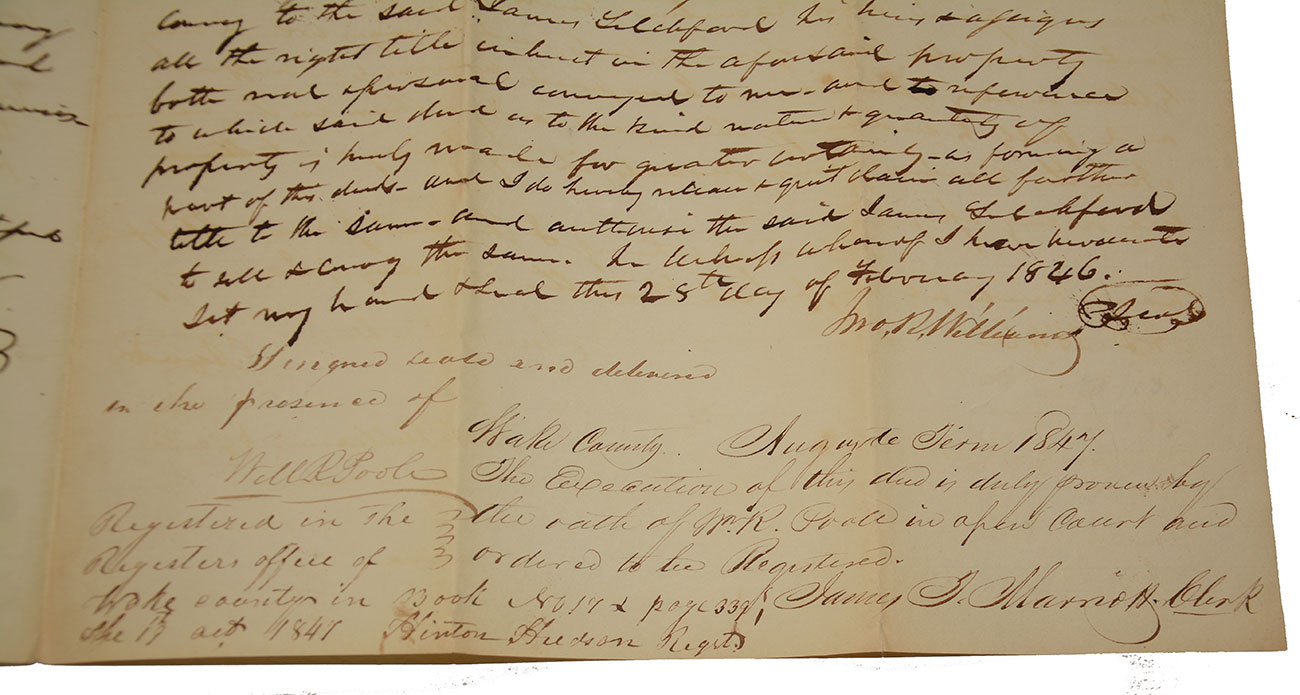 convey to the said James Litchford his heirs & assigns
all the right title interest in the aforesaid property
both real & personal conveyed to me - and to reference
to which said deed as to the kind nature & quantity of
property is hereby made for greater certainty - as forming a
part of this deed - and I do hereby release & quit claim all further
title to the same - and authorise the said James Litchford
to sell & convey the same. In witness whereof I have hereunto
set my hand & seal this 28th day of February 1846.
Jno. R. Williams Seal
Singned seald and delivered
in the presence of
Will R Poole
Wake County. Auguste Term 1847.
The Execution of this deed is duly proven by
the oath of Wm R. Poole in open Court and
ordered to be Registered.
James T. Marriott. Clerk
Registered in the
Registers office of
Wake county in Book No 17 & page 339
the 13 oct 1847 Hinton Hudson Regst.